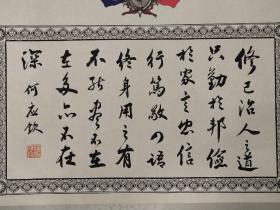 修己治人之道
只勤於邦儉
於家言忠信
行篤敬四語
終身用之有
不能盡不在
多亦不在
深 何应钦